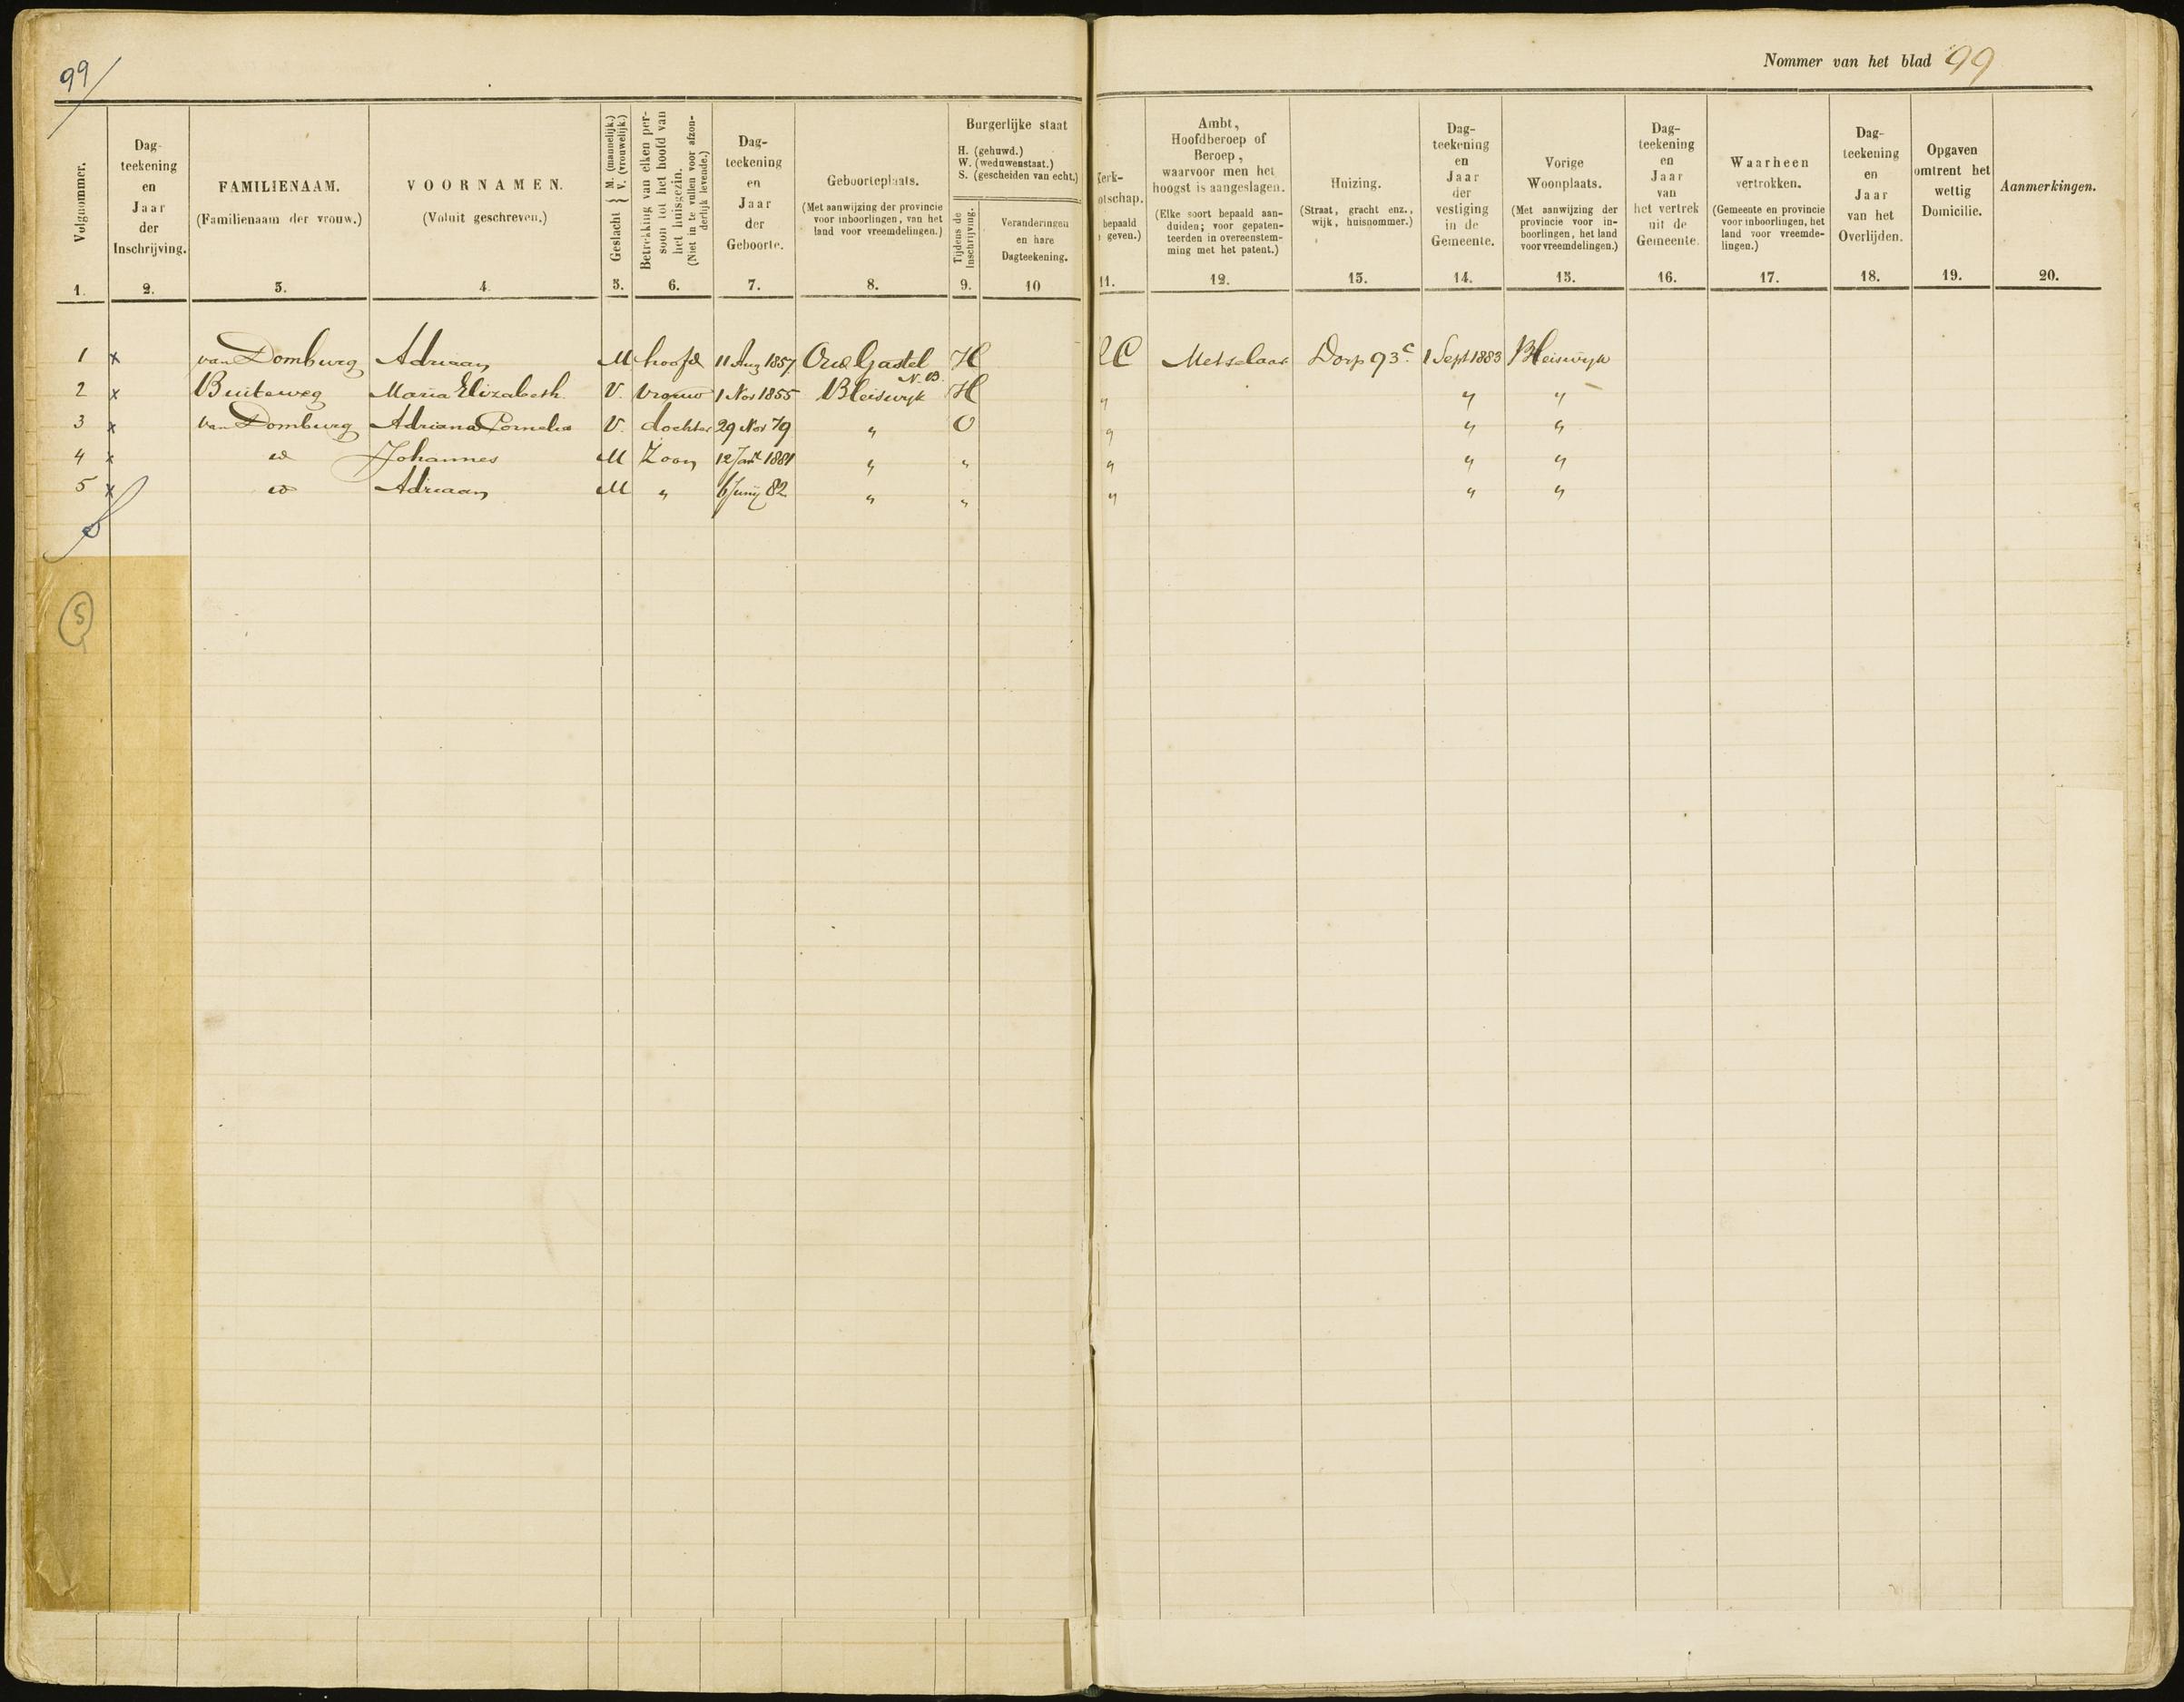 99/
Nommer van het blad 99
Volgnommer.
1.
Dag-
teekening
en
Jaar
der
Inschrijving.
2.
FAMILIENAAM.
(Familienaam der vrouw.)
3.
VOORNAMEN.
(Voluit geschreven.)
4.
Geslacht { M. (mannelijk.)
V. (vrouwelijk.)
5.
Betrekking van elken per-
soon tot het hoofd van
het huisgezin.
(Niet in te vullen voor afzon-
derlijk levende.)
6.
Dag-
teekening
en
Jaar
der
Geboorte.
7.
Geboorteplaats.
(Met aanwijzing der provincie
voor inboorlingen, van het
land voor vreemdelingen.)
8.
Burgerlijke staat
H. (gehuwd.)
W. (weduwenstaat.)
S. (gescheiden van echt.)
Tijdens de
Inschrijving.
9.
Veranderingen
en hare
Dagteekening.
10
Kerk-
otschap.
bepaald
geven.)
11.
Ambt,
Hoofdberoep of
Beroep,
waarvoor men het
hoogst is aangeslagen.
(Elke soort bepaald aan-
duiden; voor gepaten-
teerden in overeenstem-
ming met het patent.)
12.
Huizing.
(Straat, gracht enz.,
wijk, huisnommer.)
13.
Dag-
teekening
en
Jaar
der
vestiging
in de
Gemeente.
14.
Vorige
Woonplaats.
(Met aanwijzing der
provincie voor in-
boorlingen, het land
voor vreemdelingen.)
15.
Dag-
teekening
en
Jaar
van
het vertrek
uit de
Gemeente.
16.
Waarheen
vertrokken.
(Gemeente en provincie
voor inboorlingen, het
land voor vreemde-
lingen.)
17.
Dag-
teekening
en
Jaar
van het
Overlijden.
18.
Opgaven
omtrent het
wettig
Domicilie.
19.
Aanmerkingen.
20.
1 x van Domburg Adriaan M hoofd 11 Aug 1857 Oud Gastel N. B. H RC Metselaar Dorp 93c. 1 Sept 1883 Bleiswijk
2 x Buiteweg Maria Elizabeth V. vrouw 1 Nov 1855 Bleiswijk H " " "
3 x van Domburg Adriana Cornelia V. dochter 29 Nov 79 " O " " "
4 x id Johannes M Zoon 12 Jan 1881 " " " " "
5 x id Adriaan M " 6 Junij 82 " " " " "
5